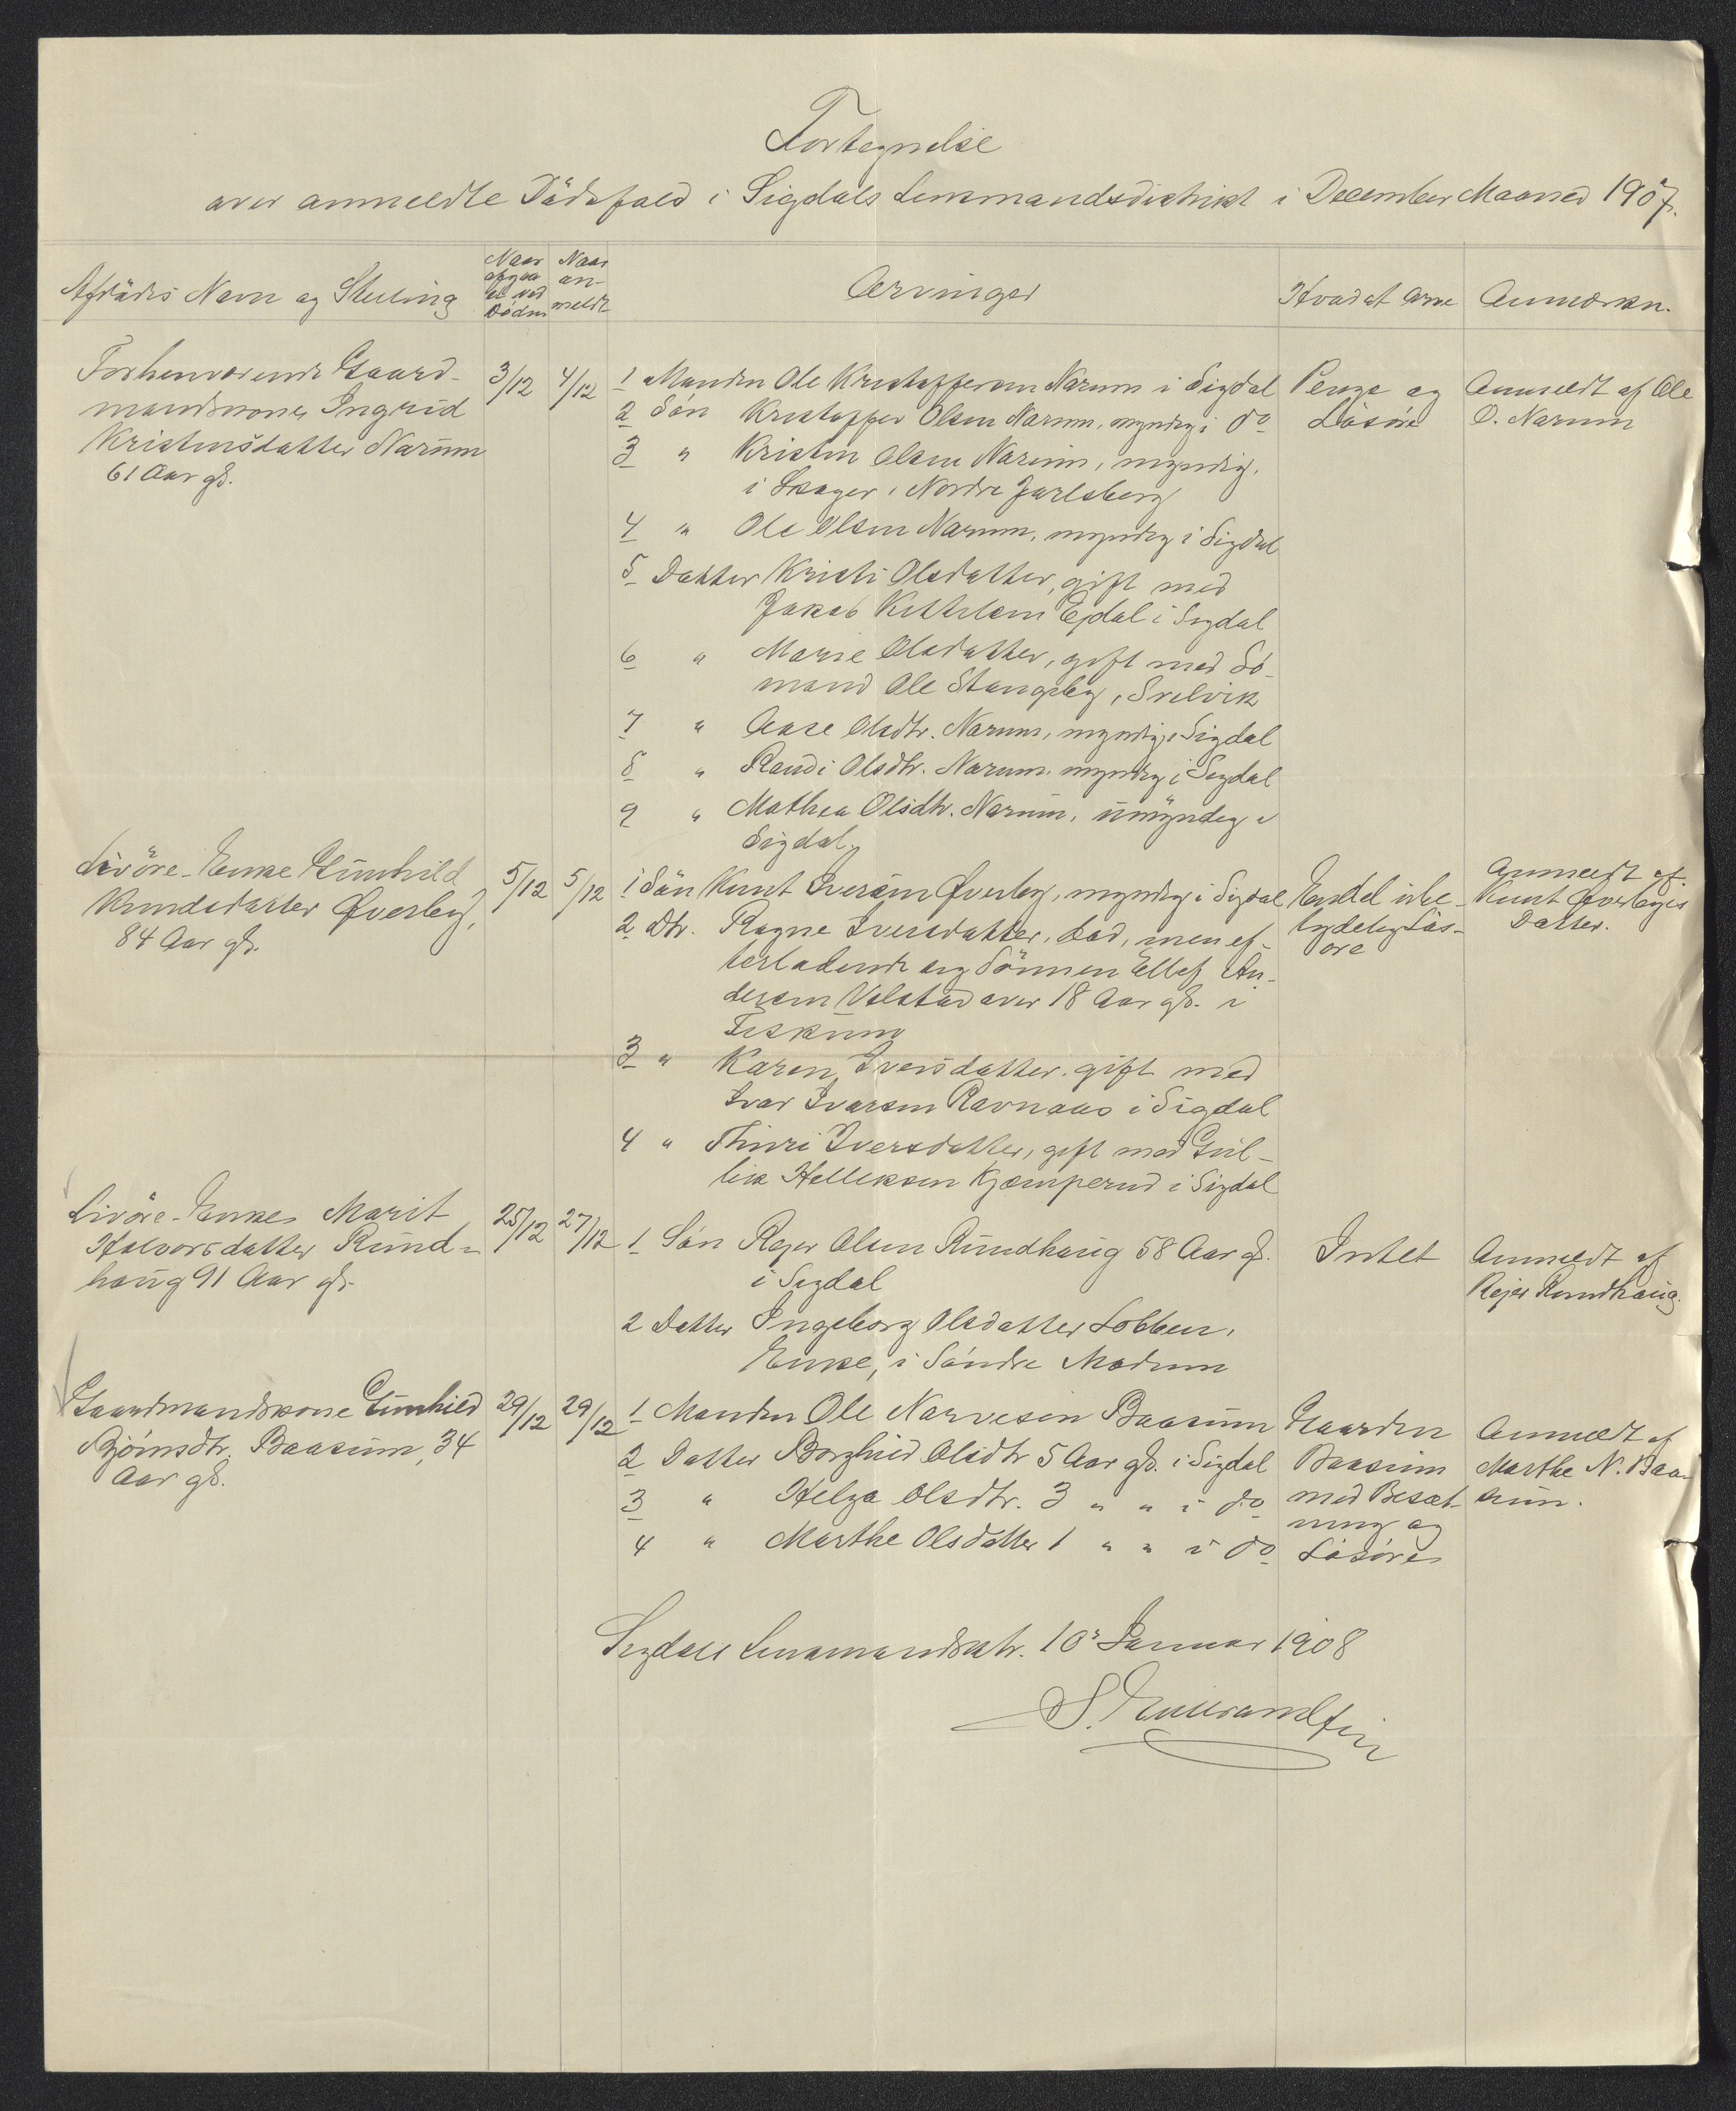 Fortegnelse
over anmeldte Dödsfald i Sigdals Lensmandsdistrikt i December Maaned 1907.
Afdödes Navn og Stilling
Naar afgaaet ved Döden
Naar anmeldt
Arvinger
Hvad at arve
Anmærkn.
Forhenværende Gaard-
mandskone Ingrid
Kristensdatter Narum
61 Aar gl.
3/12
4/12
1 Manden Ole Kristoffersen Narum i Sigdal
2 Sön Kristoffer Olsen Narum, myndig i do
3 " Kristen Olsen Narum, myndig,
i Skoger, Nordre Jarlsberg
4 " Ole Olsen Narum, myndig i Sigdal
5 Datter Kristi Olsdatter, gift med
Jakob Kittelsen Ejdal i Sigdal
6 " Marie Olsdatter, gift med Sö-
mand Ole Stangeby, Svelvik
7 " Aase Olsdtr. Narum, myndig i Sigdal
8 " Randi Olsdtr. Narum, myndig i Sigdal
9 " Mathea Olsdtr. Narum, umyndig i
Sigdal
Penge og
Lösöre
Anmeldt af Ole
O. Narum
Livöre-Enke Gunhild
Knudsdatter Øverby,
84 Aar gl.
5/12
5/12
1 Sön Knut Iversen Øverby, myndig i Sigdal
2 Dtr. Ragne Iversdatter, död, men ef-
terladende sig Sönnen Ellef An-
dersen Velstad over 18 Aar gl. i
Fiskum
3 " Karen Iversdatter, gift med
Ivar Ivarsen Ravnaas i Sigdal
4 " Thuri Iversdatter, gift med Gul-
lik Helleksen Kjæmperud i Sigdal
Endel ube-
tydelig Lös-
öre
Anmeldt af
Knut Øverbys
Datter.
Livöre-Enke Marit
Halvorsdatter Rund-
haug 91 Aar gl.
25/12
27/12
1 Sön Rejer Olsen Rundhaug 58 Aar gl.
i Sigdal
2 Datter Ingeborg Olsdatter Lobben,
Enke, i Söndre Modum
Intet
Anmeldt af
Rejer Rundhaug.
Gaardmandskone Gunhild
Björnsdtr. Baasum, 34
Aar gl.
29/12
29/12
1 Manden Ole Narvesen Baasum
2 Datter Borghild Olsdtr 5 Aar gl. i Sigdal
3 " Helga Olsdtr. 3 " " i do
4 " Marthe Olsdatter 1 " " i do
Gaarden
Baasum
med Besæt-
ning og
Lösöre
Anmeldt af
Marthe N. Baa-
sum.
Sigdals Lensmandsktr. 10' Januar 1908